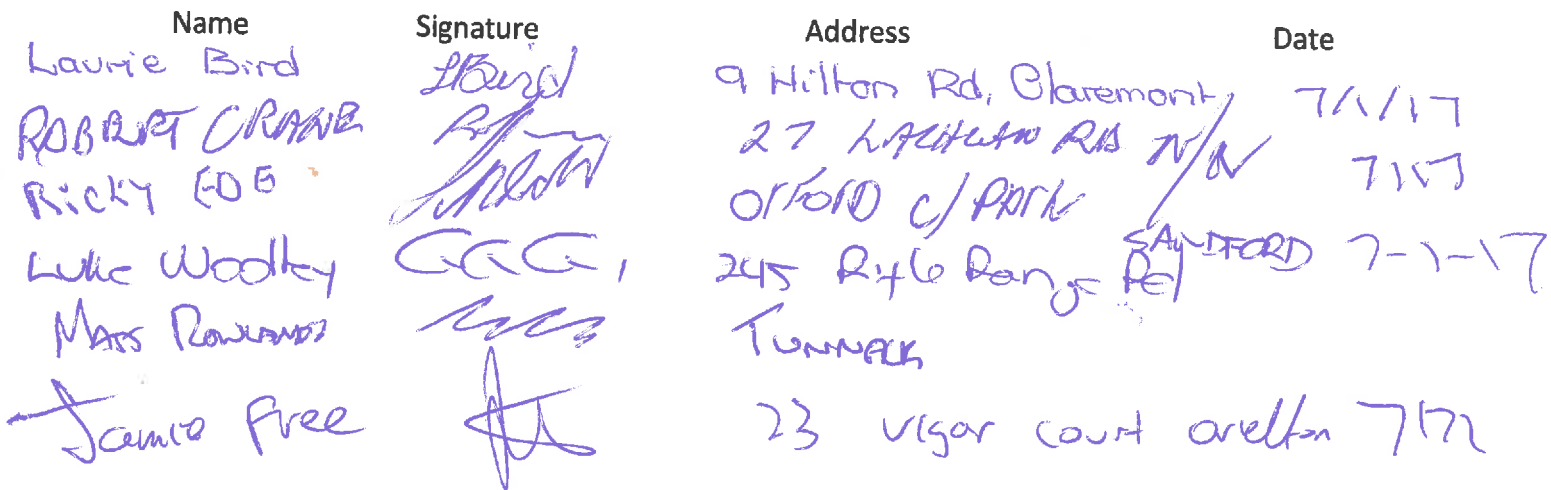 Name Signature Address Date
Laurie Bird LBird 9 Hilton Rd, Claremont 7/1/17
ROBERT CRANE 27 LACHLAN RD N/N
Ricky EDE ORFORD C/PARK
Luke Woolley 245 Rifle Range Rd SANDFORD 7-1-17
ROWLANDS TUNNACK
Jamie Free 23 vigar court